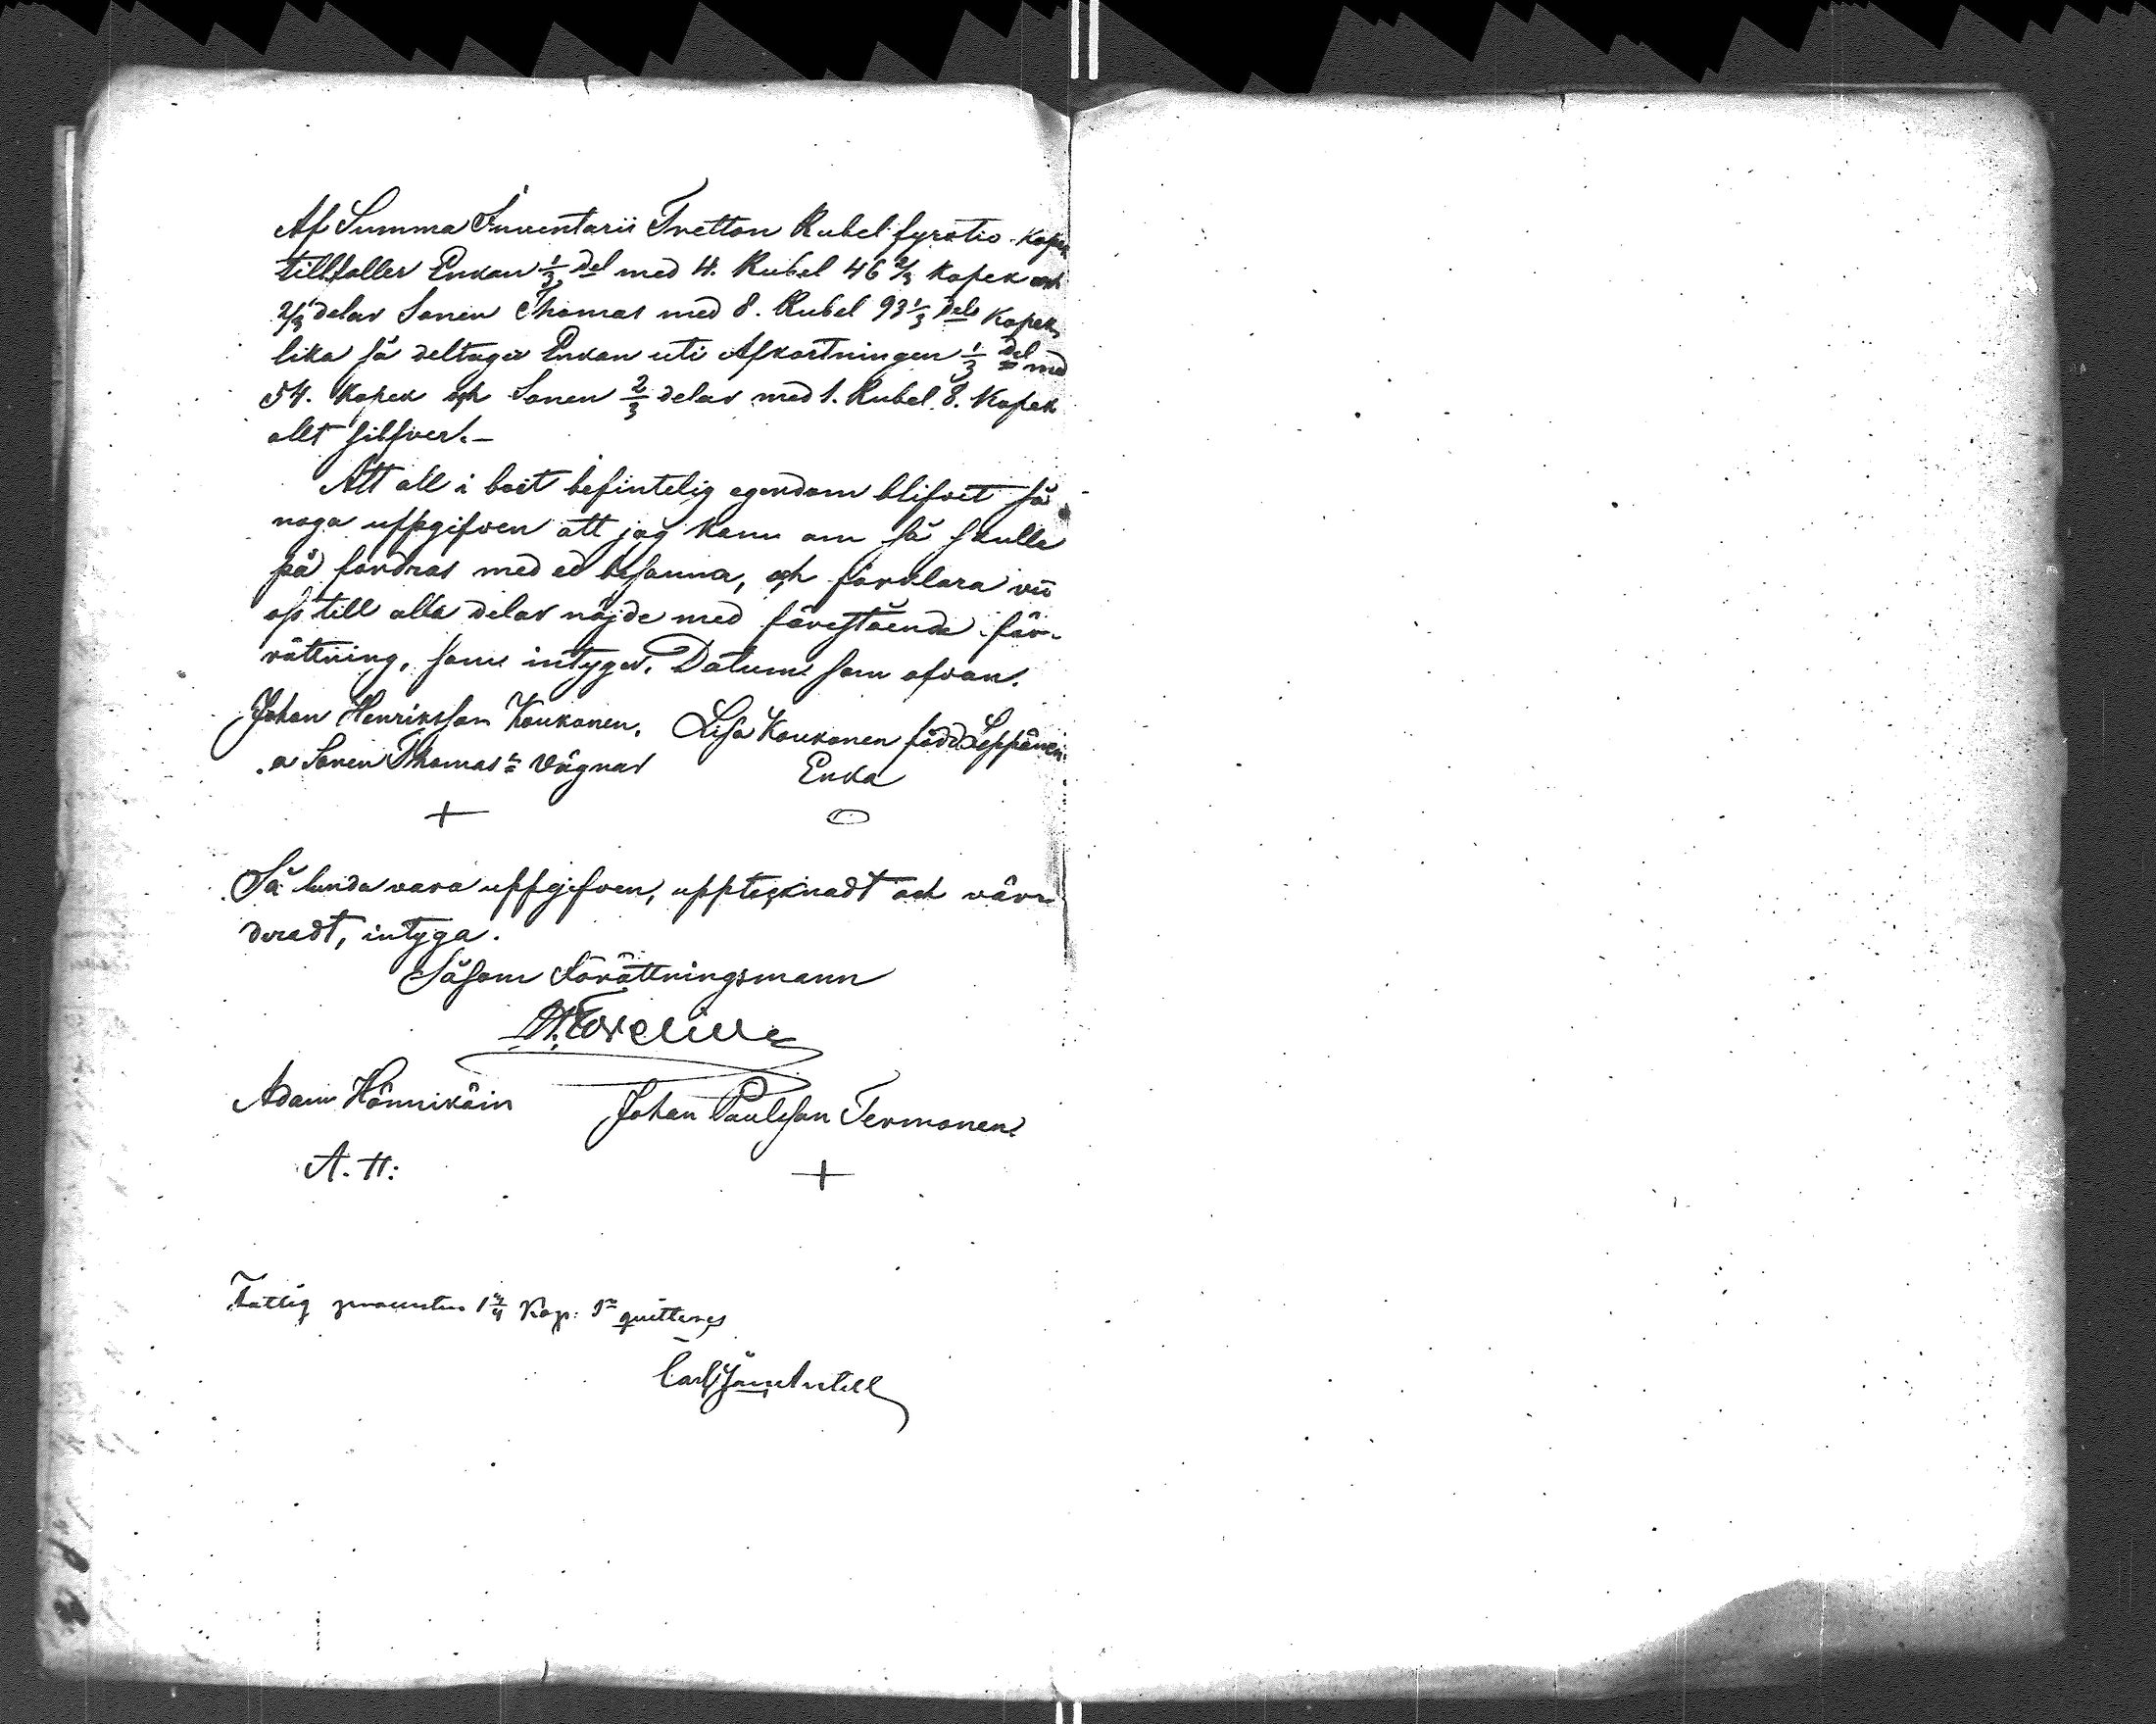 Af Summa Inventarii Tretton Rubel fyratio Kopek
tillfaller Enkan 1/3 del med 4. Rubel 46 2/3 Kopek och
2/3 delar Sonen Thomas med 8. Rubel 93 1/3 dels Kopek,
lika så deltager Enkan uti Afkortningen 1/3 del med
54. Kopek och Sonen 2/3 delar med 1. Rubel 8. Kopek
allt silfver.—
Att all i boet befintelig egendom blifvit så
noga uppgifven att jag kann om så skulle
på fordras med ed besanna, och förklara vii
oss till alla delar nöjde med förestående för-
rättning, som intygar. Datum som ofvan.
Johan Henriksson Koukonen. Lisa Koukonen född Leppänen.
a Sonen Thomas vägnar Enka
+ O
Så lunda vara uppgifven, upptecknadt och vär-
deradt, intyga.
Såsom Förättningsmann
Adam Hännikäin Johan Paulsson Termonen.
A. H: +
Fattig procenten 1 3/4 Kop: Sr quitteres
Carl